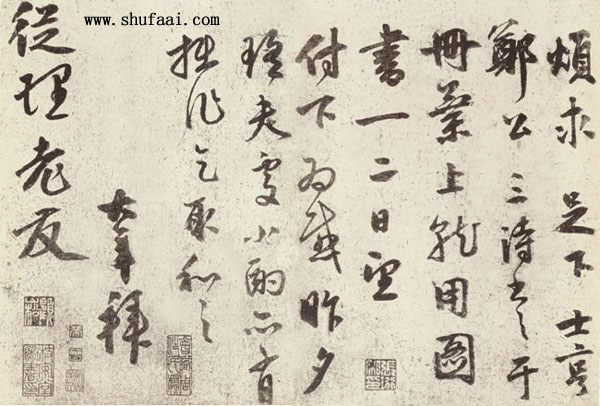 www.shufaai.com
煩求 足下 士亨
鄭公 三诗書于
冊葉上 就用圖
書一二日望
付下为感昨夕
瑤夫處小酌亦有
拙作乞取和之
大年拜
從理老友